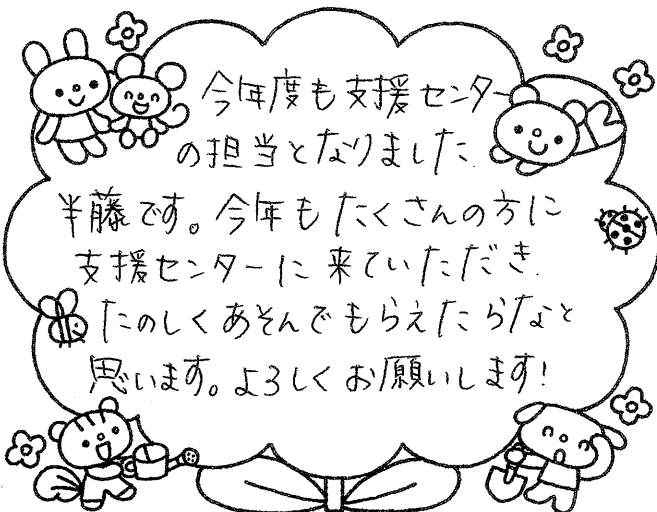 今年度も支援センター
の担当となりました
半藤です。今年もたくさんの方に
支援センターに来ていただき
たのしくあそんでもらえたらなと
思います。よろしくお願いします!